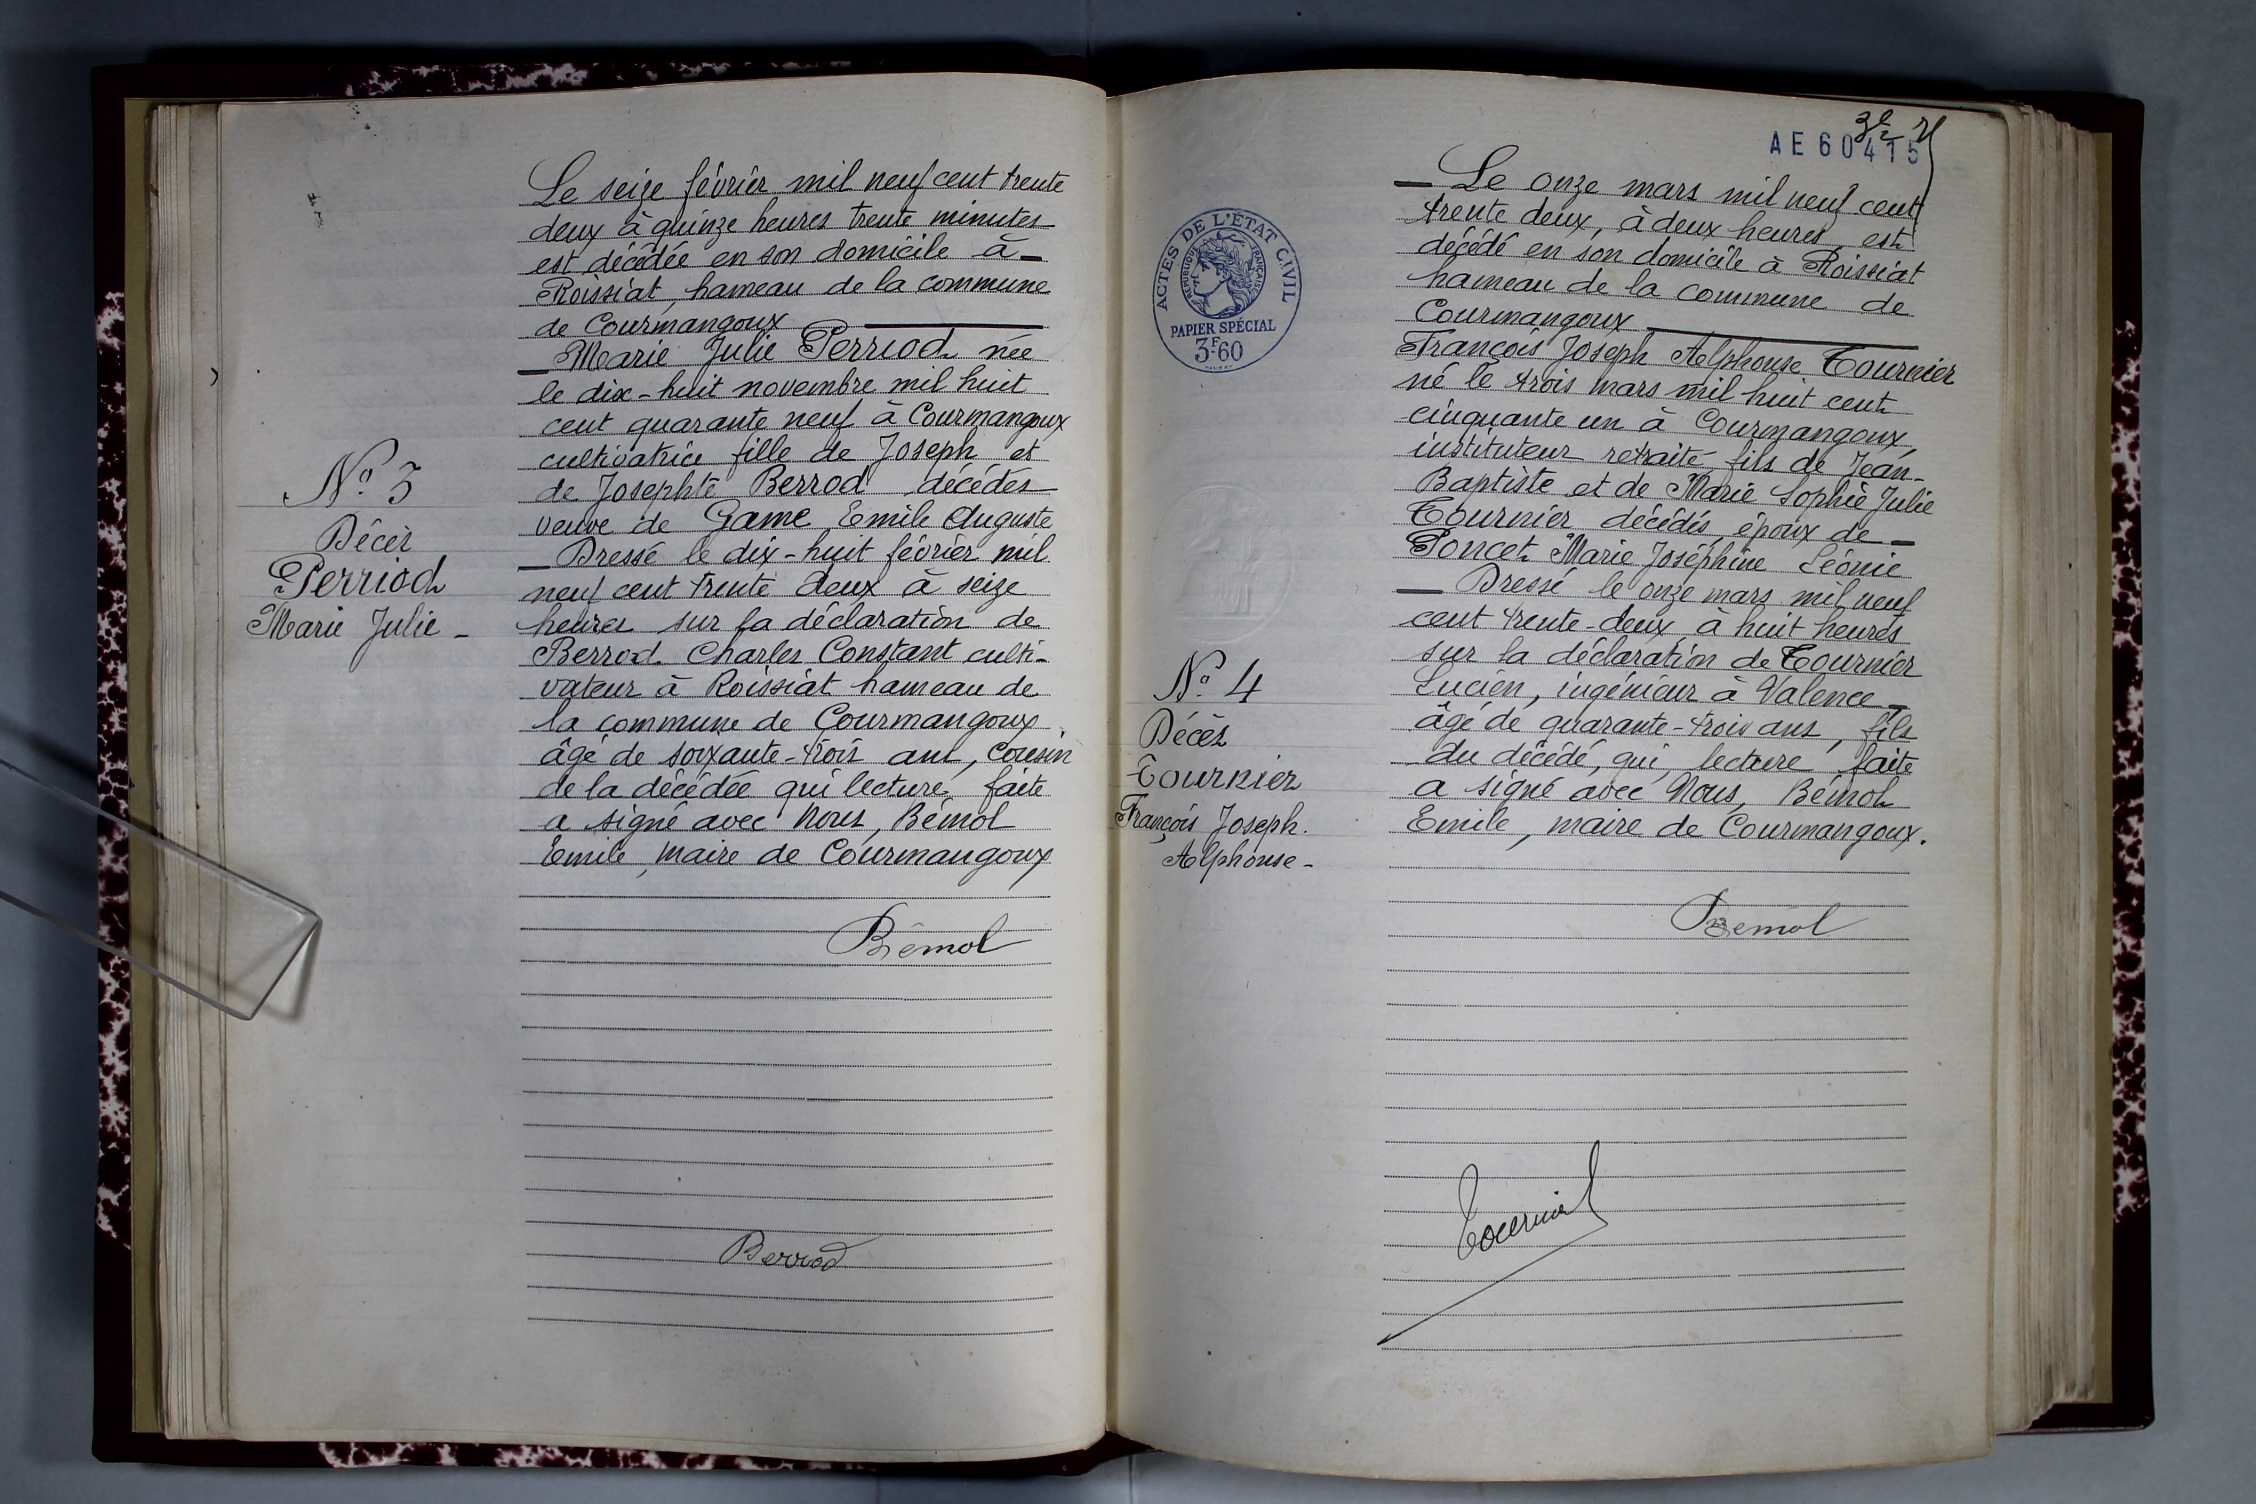 Le seize février mil neuf cent trente
deux à quinze heures trente minutes
est décédée en son domicile à
Roissiat, hameau de la commune
de Courmangoux
Marie Julie Perriod née
le dix-huit novembre mil huit
cent quarante neuf à Courmangoux
cultivatrice fille de Joseph et
de Josephte Berrod décédés
veuve de Game Emile Auguste
Dressé le dix-huit février mil
neuf cent trente deux à seize
heures sur la déclaration de
Berrod Charles Constant culti-
vateur à Roissiat hameau de
la commune de Courmangoux
âgé de soixante-trois ans, cousin
de la décédée qui lecture faite
a signé avec Nous, Bémol
Emile, maire de Courmangoux
Bémol
Berrod
No 3
Décès
Perriod
Marie Julie -
AE 60415
ACTES DE L'ÉTAT CIVIL
RÉPUBLIQUE FRANÇAISE
PAPIER SPÉCIAL
3F.60
Le onze mars mil neuf cent
trente deux, à deux heures, est
décédé en son domicile à Roissiat
hameau de la commune de
Courmangoux
François Joseph Alphonse Tournier
né le trois mars mil huit cent
cinquante un à Courmangoux,
instituteur retraité, fils de Jean-
Baptiste et de Marie Sophie Julie
Tournier décédés, époux de
Poncet Marie Joséphine Léonie
Dressé le onze mars mil neuf
cent trente-deux à huit heures
sur la déclaration de Tournier
Lucien, ingénieur à Valence
âgé de quarante-trois ans, fils
du décédé, qui, lecture faite
a signé avec Nous, Bémol
Emile, maire de Courmangoux.
Bémol
Tournier
No 4
Décès
Tournier
François Joseph.
Alphonse -